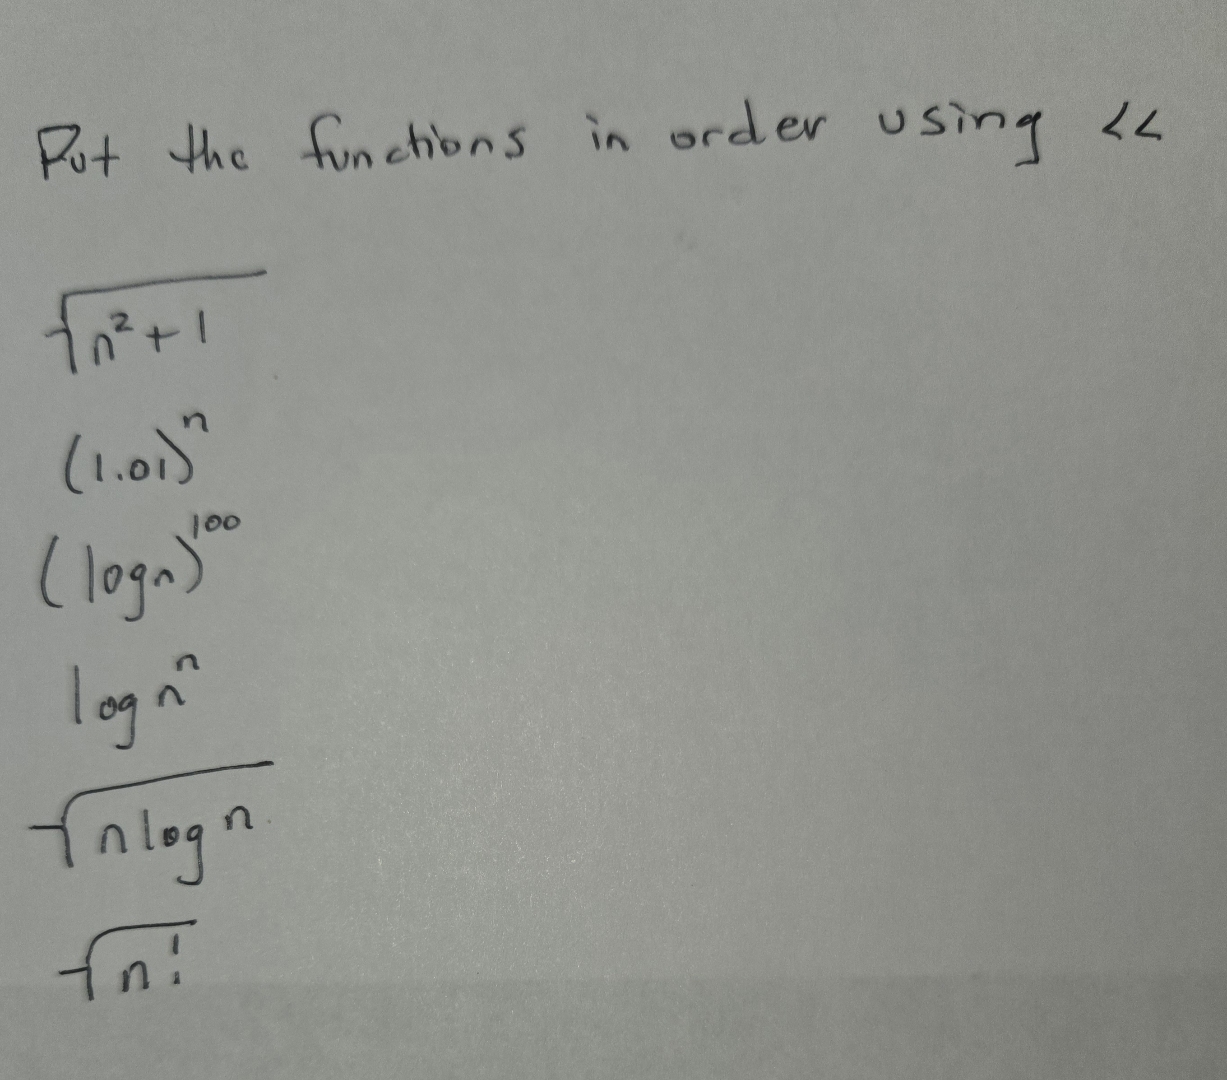 Put the functions in order using <<
√(n²+1)
(1.01)ⁿ
(log n)¹⁰⁰
log nⁿ
√(n log n)
√(n!)